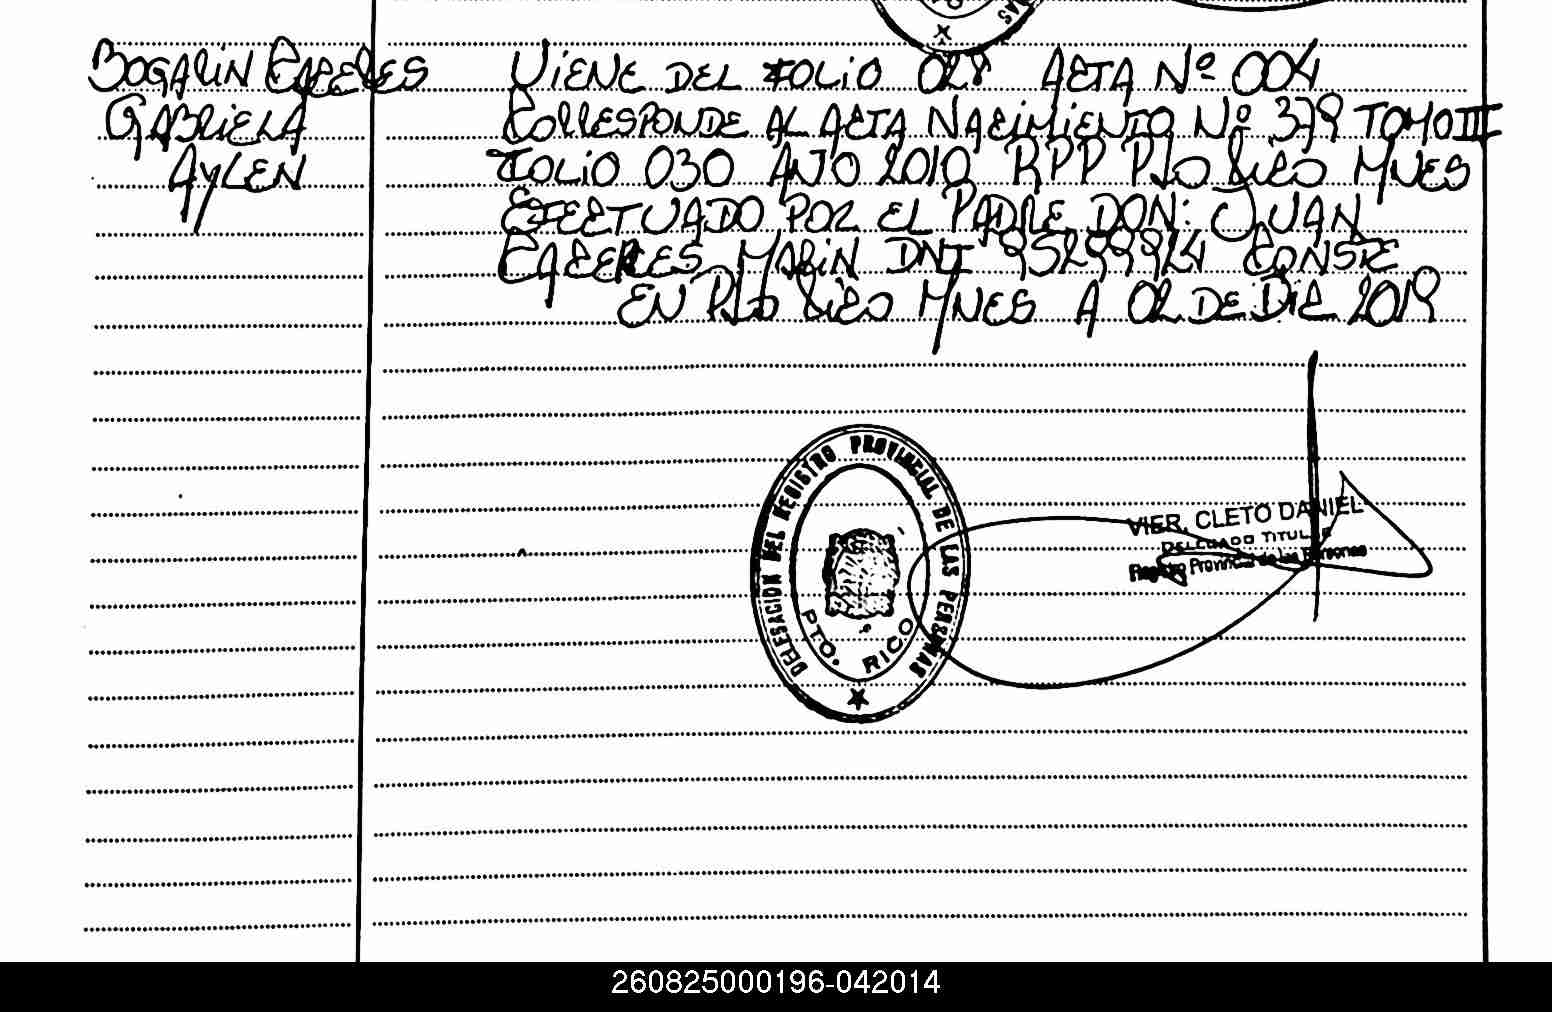 BOGARIN CACERES
GABRIELA
AYLEN
VIENE DEL FOLIO 028 ACTA Nº 004
CORRESPONDE AL ACTA NACIMIENTO Nº 379 TOMO III
FOLIO 030 AÑO 2010 RPP PTO RICO MNES
EFECTUADO POR EL PADRE DON: JUAN
CACERES MARIN DNI 95299924 CONSTE
EN PTO RICO MNES A 02 DE DIC 2019
DELEGACION DEL REGISTRO PROVINCIAL DE LAS PERSONAS
PTO. RICO
VIER, CLETO DANIEL
DELEGADO TITULAR
Registro Provincial de las Personas
260825000196-042014